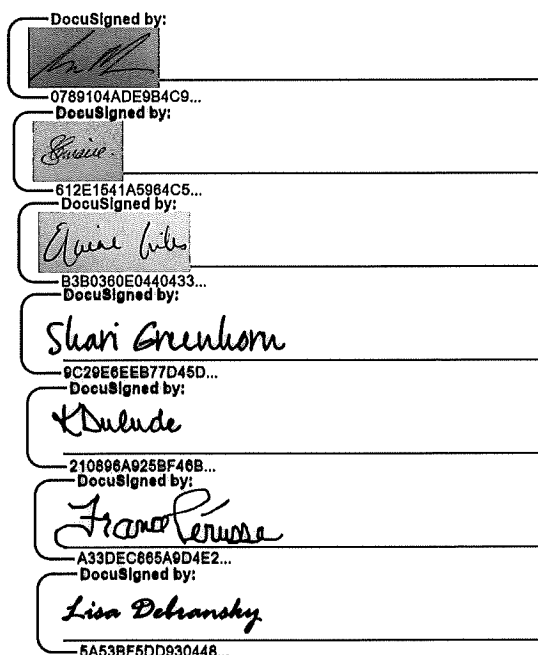 DocuSigned by:
0789104ADE9B4C9...
DocuSigned by:
612E1541A5964C5...
DocuSigned by:
B3B0360E0440433...
DocuSigned by:
Shari Greenhorn
9C29E6EEB77D45D...
DocuSigned by:
KDulude
210896A925BF46B...
DocuSigned by:
France Pérusse
A33DEC665A9D4E2...
DocuSigned by:
Lisa Debransky
5A53BF5DD930448...